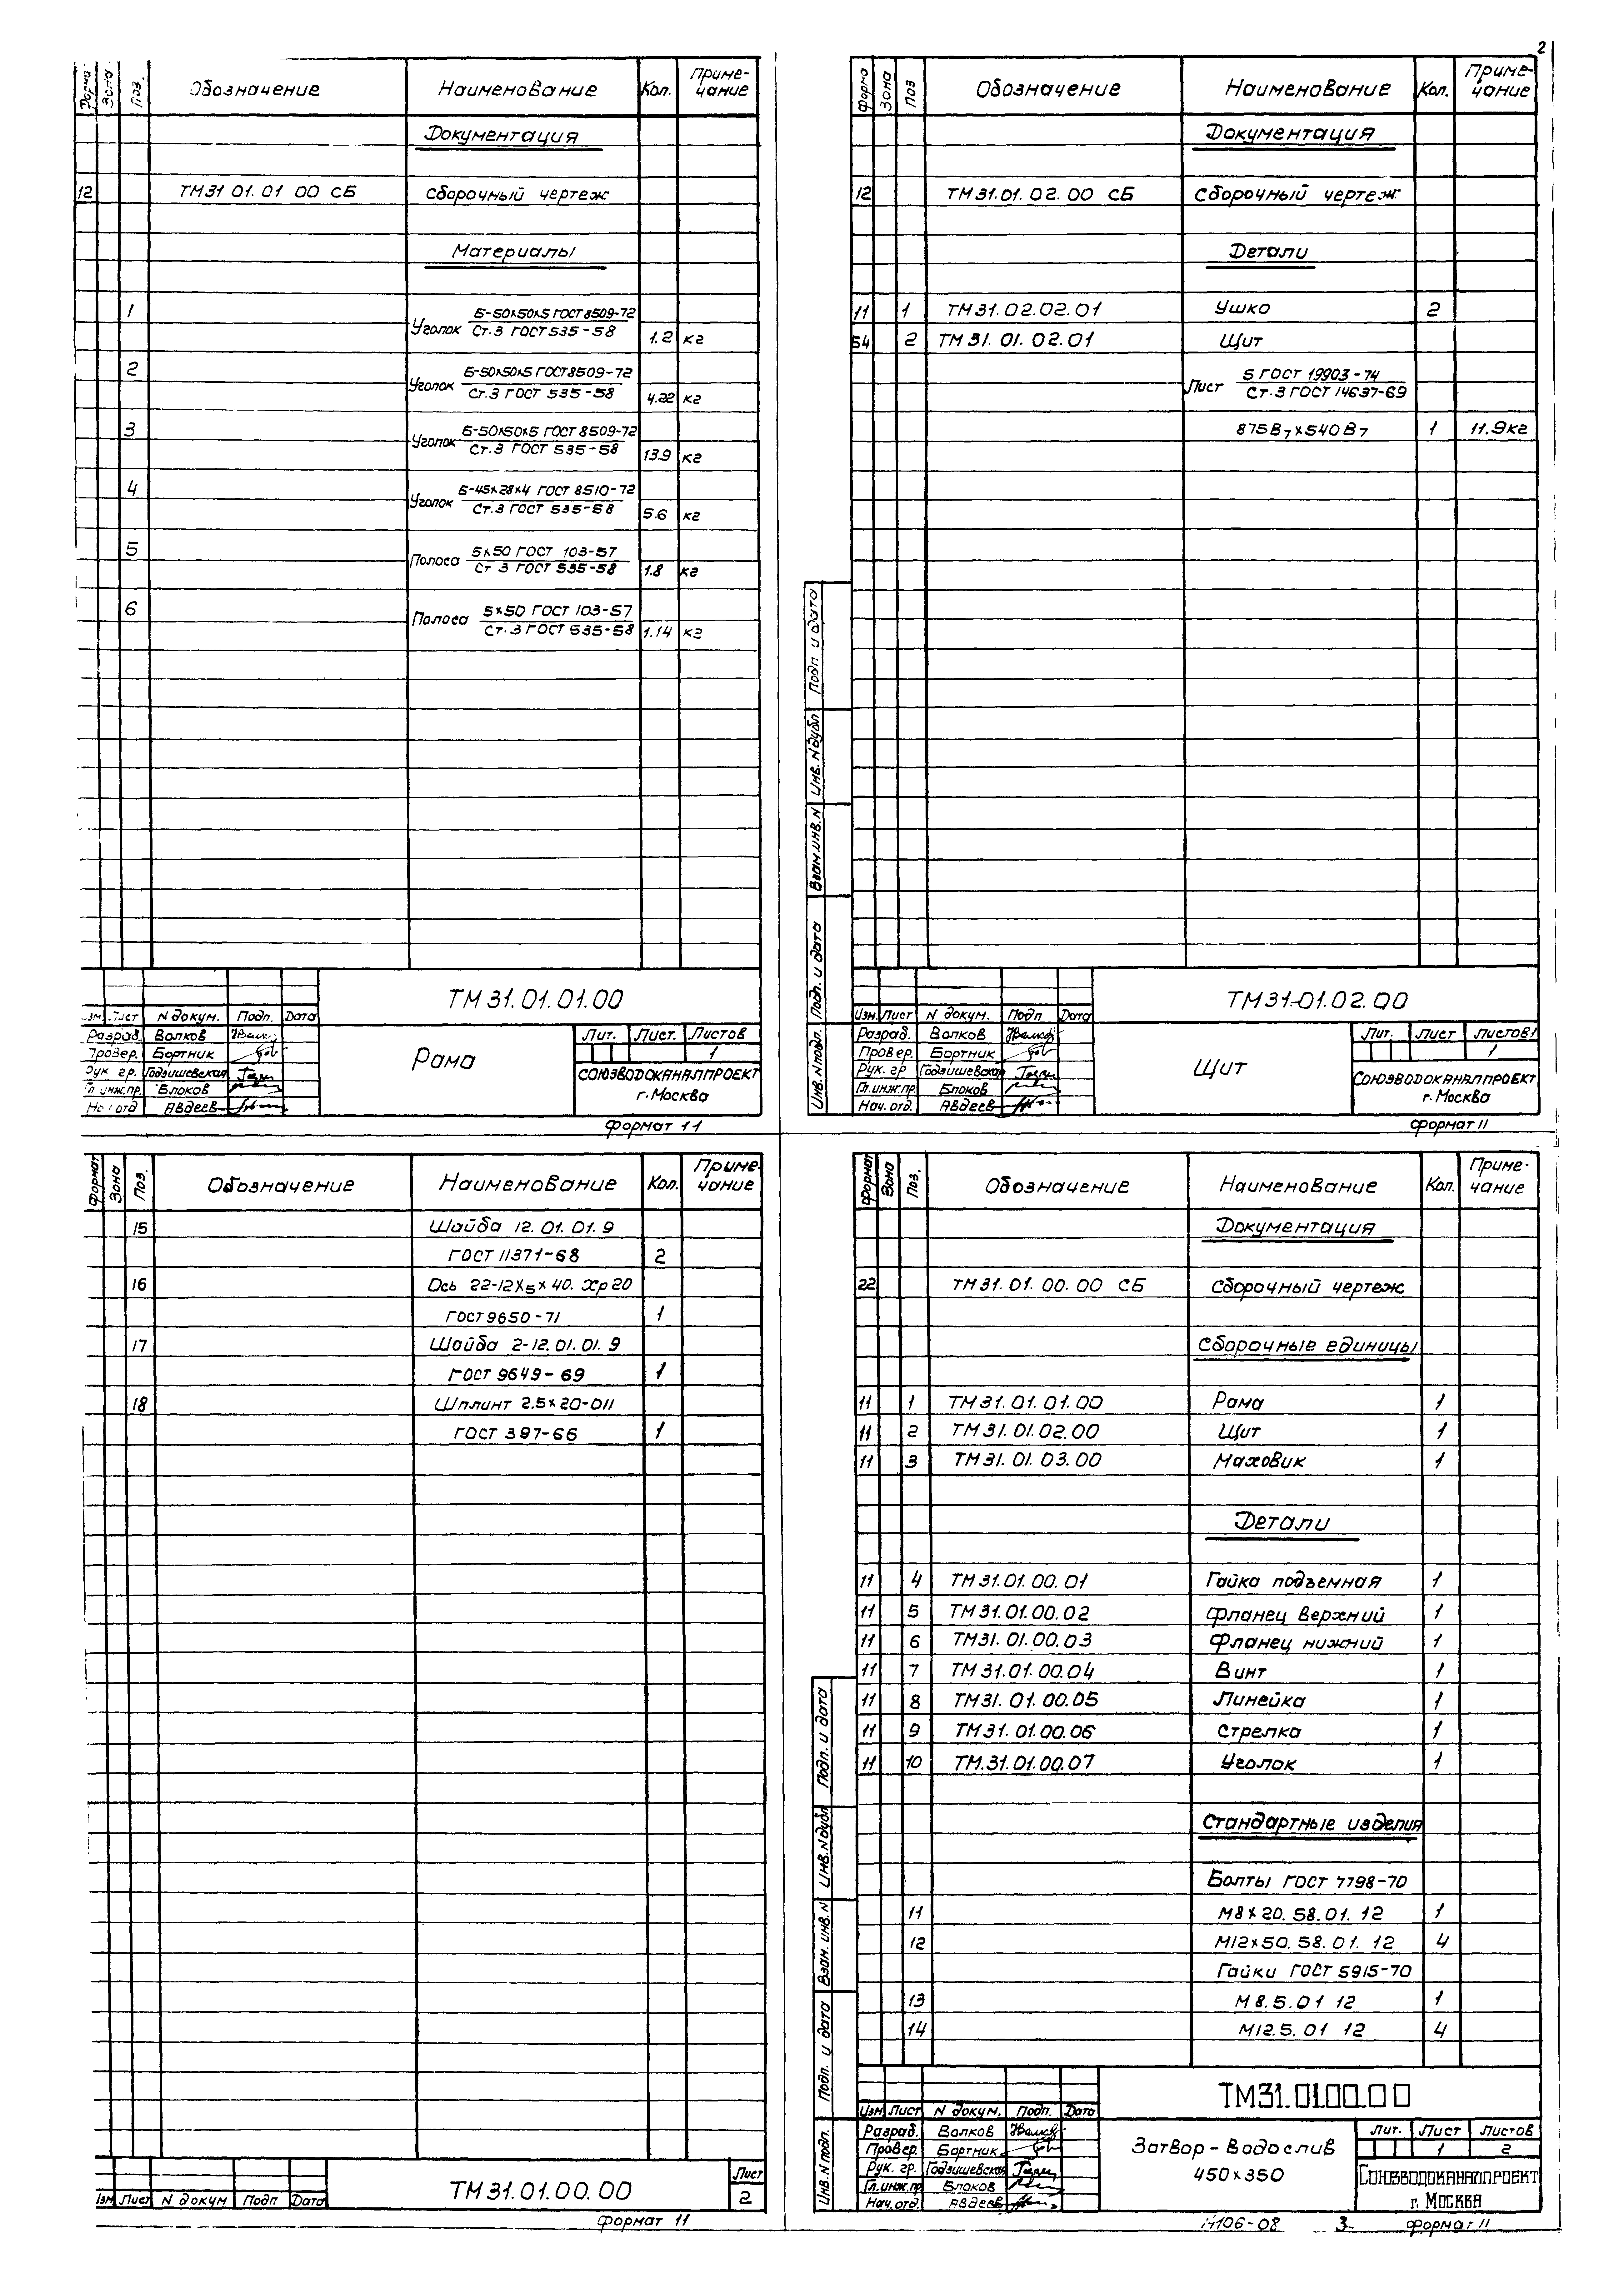 2
Форма Зона Поз. Обозначение Наименование Кол. Приме-
чание
Документация
12 ТМ31 01.01 00 СБ Сборочный чертеж
Материалы
1 Уголок Б-50х50х5 ГОСТ 8509-72
Ст.3 ГОСТ 535-58 1.2 кг
2 Уголок Б-50х50х5 ГОСТ 8509-72
Ст.3 ГОСТ 535-58 4.22 кг
3 Уголок Б-50х50х5 ГОСТ 8509-72
Ст.3 ГОСТ 535-58 13.9 кг
4 Уголок Б-45х28х4 ГОСТ 8510-72
Ст.3 ГОСТ 535-58 5.6 кг
5 Полоса 5х50 ГОСТ 103-57
Ст 3 ГОСТ 535-58 1.8 кг
6 Полоса 5х50 ГОСТ 103-57
Ст.3 ГОСТ 535-58 1.14 кг
ТМ31.01.01.00
Лист N докум. Подп. Дата
Разраб. Волков
Провер. Бортник
Рук гр. Годзишевская
Гл.инж.пр. Блоков
Нач отд Авдеев
Рама
Лит. Лист. Листов
1
СОЮЗВОДОКАНАЛПРОЕКТ
г. Москва
Формат 11
Форма Зона Поз Обозначение Наименование Кол. Приме-
чание
Документация
12 ТМ31.01.02.00 СБ Сборочный чертеж
Детали
11 1 ТМ31.02.02.01 Ушко 2
54 2 ТМ 31.01.02.01 Щит
Лист 5 ГОСТ 19903-74
Ст.3 ГОСТ 14637-69
875В7х540В7 1 11.9кг
Подп и дата
Инв. N дубл
Взам.инв.N
Подп. и дата
Инв. N подл.
ТМ31-01.02.00
Изм. Лист N докум. Подп Дата
Разраб. Волков
Провер. Бортник
Рук. гр Годзишевская
Гл.инж.пр. Блоков
Нач. отд. Авдеев
Щит
Лит. Лист Листов
1
СОЮЗВОДОКАНАЛПРОЕКТ
г. Москва
Формат 11
Формат Зона Поз. Обозначение Наименование Кол. Приме-
чание
15 Шайба 12.01.01.9
ГОСТ 11371-68 2
16 Ось 22-12Х5х40.Хр20
ГОСТ 9650-71 1
17 Шайба 2-12.01.01.9
ГОСТ 9649-69 1
18 Шплинт 2.5х20-011
ГОСТ 397-66 1
Изм Лист N докум Подп Дата
ТМ31.01.00.00
Лист
2
Формат 11
Формат Зона Поз. Обозначение Наименование Кол. Приме-
чание
Документация
22 ТМ31.01.00.00 СБ Сборочный чертеж
Сборочные единицы
11 1 ТМ31.01.01.00 Рама 1
11 2 ТМ31.01.02.00 Щит 1
11 3 ТМ31.01.03.00 Маховик 1
Детали
11 4 ТМ31.01.00.01 Гайка подъемная 1
11 5 ТМ31.01.00.02 Фланец верхний 1
11 6 ТМ31.01.00.03 Фланец нижний 1
11 7 ТМ31.01.00.04 Винт 1
11 8 ТМ31.01.00.05 Линейка 1
11 9 ТМ31.01.00.06 Стрелка 1
11 10 ТМ.31.01.00.07 Уголок 1
Стандартные изделия
Болты ГОСТ 7798-70
11 М8х20.58.01.12 1
12 М12х50.58.01.12 4
Гайки ГОСТ 5915-70
13 М8.5.01 12 1
14 М12.5.01 12 4
Подп. и дата
Инв. N дубл
Взам. инв. N
Подп. и дата
Инв. N подл.
ТМ31.01.00.00
Изм Лист N докум. Подп. Дата
Разраб. Волков
Провер. Бортник
Рук. гр. Годзишевская
Гл.инж.пр Блоков
Нач.отд. Авдеев
Затвор-водослив
450х350
Лит. Лист Листов
1 2
СОЮЗВОДОКАНАЛПРОЕКТ
г. Москва
106-08 3 Формат 11